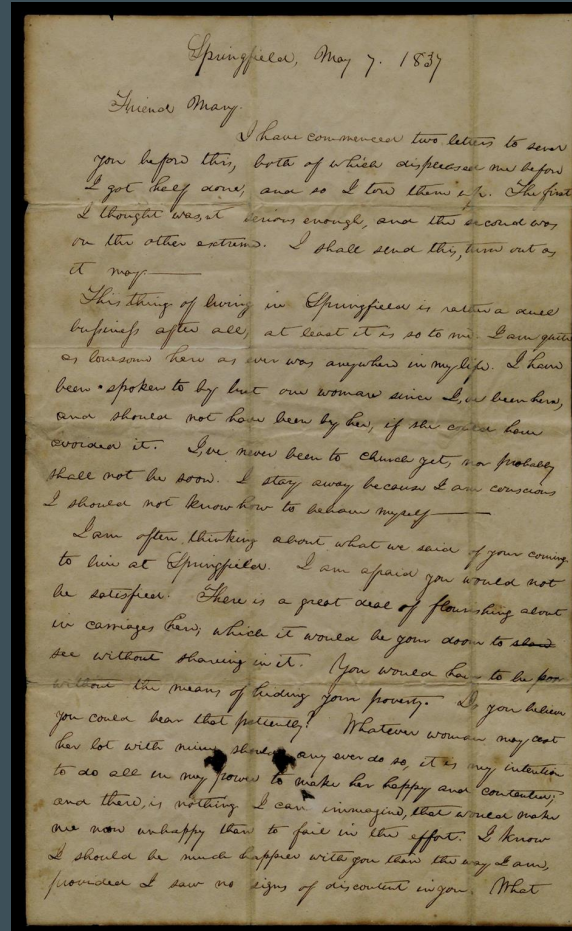 Springfield, May 7. 1837
Friend Mary.
I have commenced two letters to send
you before this, both of which displeased me before
I got half done, and so I tore them up. The first
I thought wasn't serious enough, and the second was
on the other extreme. I shall send this, turn out as
it may—
This thing of living in Springfield is rather a dull
business after all, at least it is so to me. I am quite
as lonesome here as ever was anywhere in my life. I have
been spoken to by but one woman since I've been here,
and should not have been by her, if she could have
avoided it. I've never been to church yet, nor probably
shall not be soon. I stay away because I am conscious
I should not know how to behave myself—
I am often thinking about what we said of your coming
to live at Springfield. I am afraid you would not
be satisfied. There is a great deal of flourishing about
in carriages here, which it would be your doom to
see without sharing in it. You would have to be poor
without the means of hiding your poverty. Do you believe
you could bear that patiently? Whatever woman may cast
her lot with mine, should any ever do so, it is my intention
to do all in my power to make her happy and contented;
and there is nothing I can immagine, that would make
me more unhappy than to fail in the effort. I know
I should be much happier with you than the way I am,
provided I saw no signs of discontent in you. What